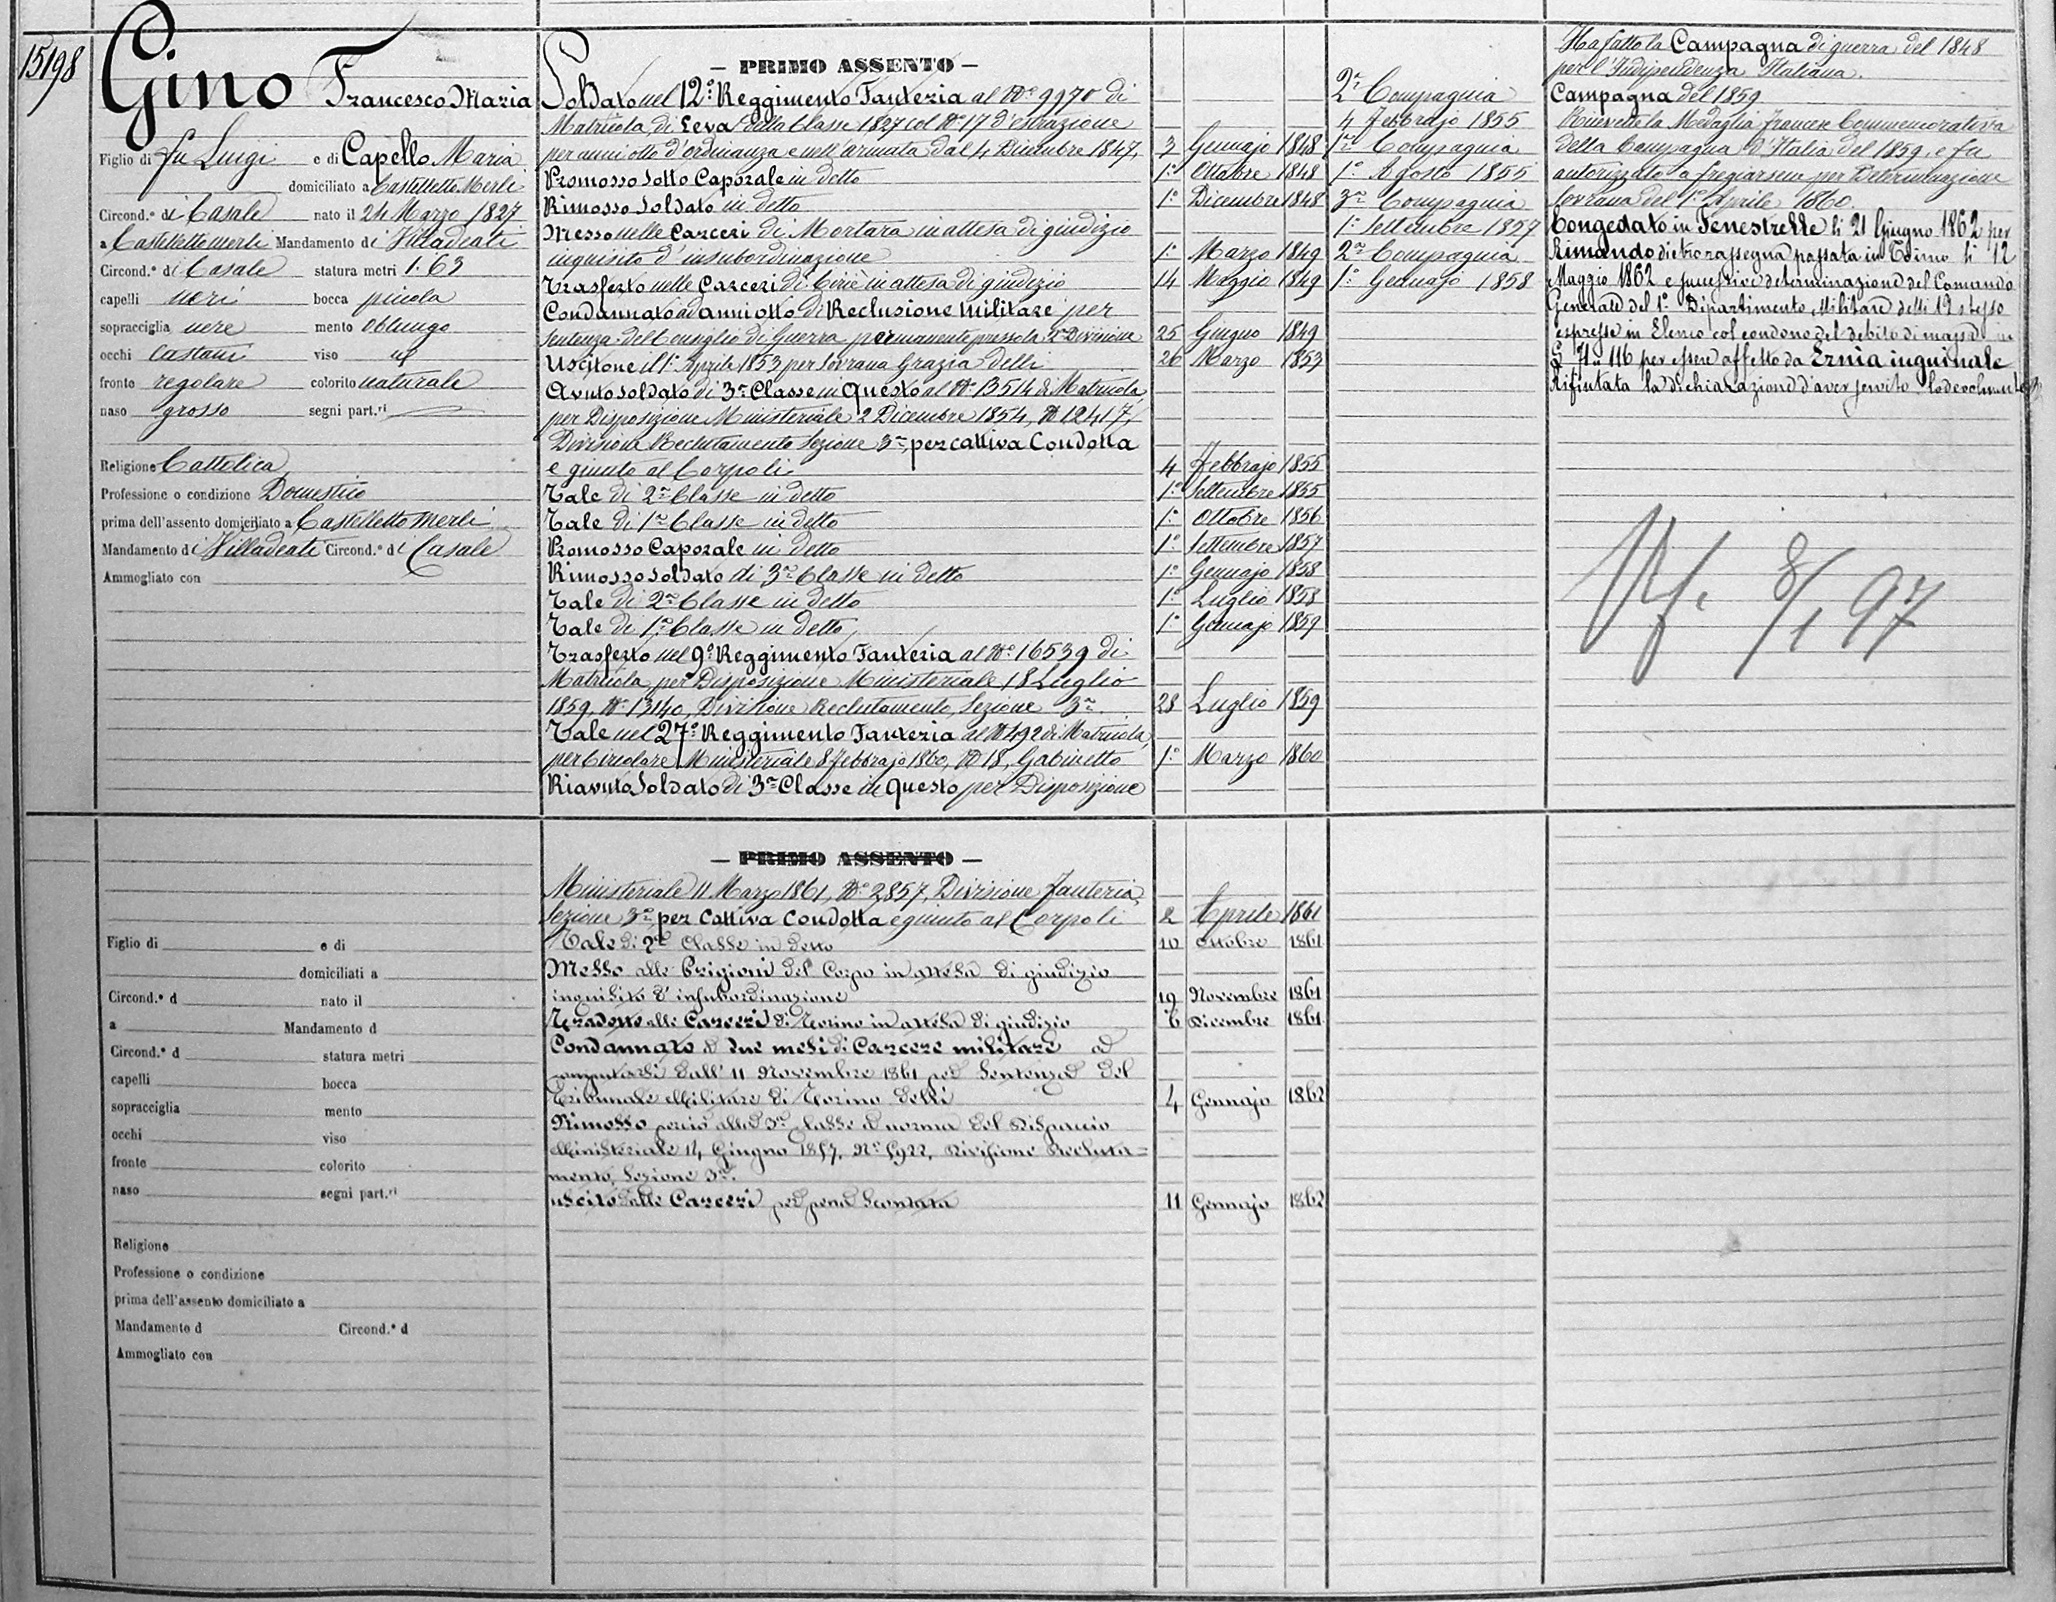 15198
Gino Francesco Maria
Figlio di fu Luigi e di Capello Maria
domiciliato a Castelletto Merli
Circond.º di Casale nato il 24 Marzo 1827
a Castellettomerli Mandamento di Villadeati
Circond.º di Casale statura metri 1.63
capelli neri bocca piccola
sopracciglia nere mento oblungo
occhi castani viso id
fronte regolare colorito naturale
naso grosso segni part.ri
Religione Cattolica
Professione o condizione Domestico
prima dell'assento domiciliato a Castelletto Merli
Mandamento di Villadeati Circond.º di Casale
Ammogliato con
— PRIMO ASSENTO —
Soldato nel 12º Reggimento Fanteria al Nº 9970 di
Matricola di Leva della Classe 1827 col Nº 17 d'estrazione
per anni otto d'ordinanza e nell'armata dal 4 Dicembre 1847, 3 Gennajo 1848
Promosso Sotto Caporale in detto 1º Ottobre 1848
Rimosso Soldato in detto 1º Dicembre 1848
Messo nelle Carceri di Mortara in attesa di giudizio
inquisito d'insubordinazione 1º Marzo 1849
Trasferto nelle Carceri di Ciriè in attesa di giudizio 14 Maggio 1849
Condannato ad anni otto di Reclusione Militare per
sentenza del Consiglio di Guerra permanente presso la 2ª Divisione 25 Giugno 1849
Uscitone il 1º Aprile 1853 per Sovrana Grazia delli 26 Marzo 1853
Avuto soldato di 3ª Classe in Questo al Nº 13514 di Matricola,
per Disposizione Ministeriale 2 Dicembre 1854, Nº 12417,
Divisione Reclutamento Sezione 3ª, per cattiva Condotta
e giunto al Corpo li 4 Febbrajo 1855
Tale di 2ª Classe in detto 1º Settembre 1855
Tale di 1ª Classe in detto 1º Ottobre 1856
Promosso Caporale in detto 1º Settembre 1857
Rimosso soldato di 3ª Classe in detto 1º Gennajo 1858
Tale di 2ª Classe in detto 1º Luglio 1858
Tale di 1ª Classe in detto, 1º Gennajo 1859
Trasferto nel 9º Reggimento Fanteria al Nº 16539 di
Matricola per Disposizione Ministeriale 18 Luglio
1859, Nº 13140, Divisione Reclutamento, Sezione 3ª 28 Luglio 1859
Tale nel 27º Reggimento Fanteria al Nº 492 di Matricola,
per Circolare Ministeriale 8 Febbrajo 1860, Nº 18, Gabinetto 1º Marzo 1860
Riavuto Soldato di 3ª Classe in Questo per Disposizione
2ª Compagnia
4 Febbrajo 1855
1ª Compagnia
1º Agosto 1855
3ª Compagnia
1º Settembre 1857
2ª Compagnia
1º Gennajo 1858
Ha fatto la Campagna di guerra del 1848
per l'Indipendenza Italiana.
Campagna del 1859
Ricevette la Medaglia Francese Commemorativa
della Campagna d'Italia del 1859, e fu
autorizzato a fregiarsene per Determinazione
Sovrana del 1º Aprile 1860.
Congedato in Fenestrelle li 21 Giugno 1862 per
Rimando dietro rassegna passata in Torino li 12
Maggio 1862 e successive determinazione del Comando
Generale del 1º Dipartimento Militare delli 19 stesso
espresse in Elenco col condono del debito di massa in
§ 71 116 per essere affetto da Ernia inguinale
Rifiutata la dichiarazione d'aver servito lodevolmente
8/1 97
— PRIMO ASSENTO —
Ministeriale 11 Marzo 1861, Nº 2857, Divisione Fanteria,
Sezione 3ª, per cattiva condotta e giunto al Corpo li 2 Aprile 1861
Tale di 2ª Classe in detto 10 Ottobre 1861
Messo alle Prigioni del Corpo in attesa di giudizio
inquisito d'insubordinazione 19 Novembre 1861
Tradotto alle Carceri di Torino in attesa di giudizio 6 Dicembre 1861
Condannato a due mesi di Carcere militare ad
computarsi dall' 11 Novembre 1861 per Sentenza del
Tribunale Militare di Torino delli 4 Gennajo 1862
Rimosso perciò alla 3ª classe a norma del Dispaccio
Ministeriale 14 Giugno 1857, Nº 5922, Divisione Recluta=
mento, Sezione 3ª.
Uscito dalle Carceri per pena scontata 11 Gennajo 1862
Figlio di e di
domiciliati a
Circond.º d nato il
a Mandamento d
Circond.º d statura metri
capelli bocca
sopracciglia mento
occhi viso
fronte colorito
naso segni part.ri
Religione
Professione o condizione
prima dell'assento domiciliato a
Mandamento d Circond.º d
Ammogliato con